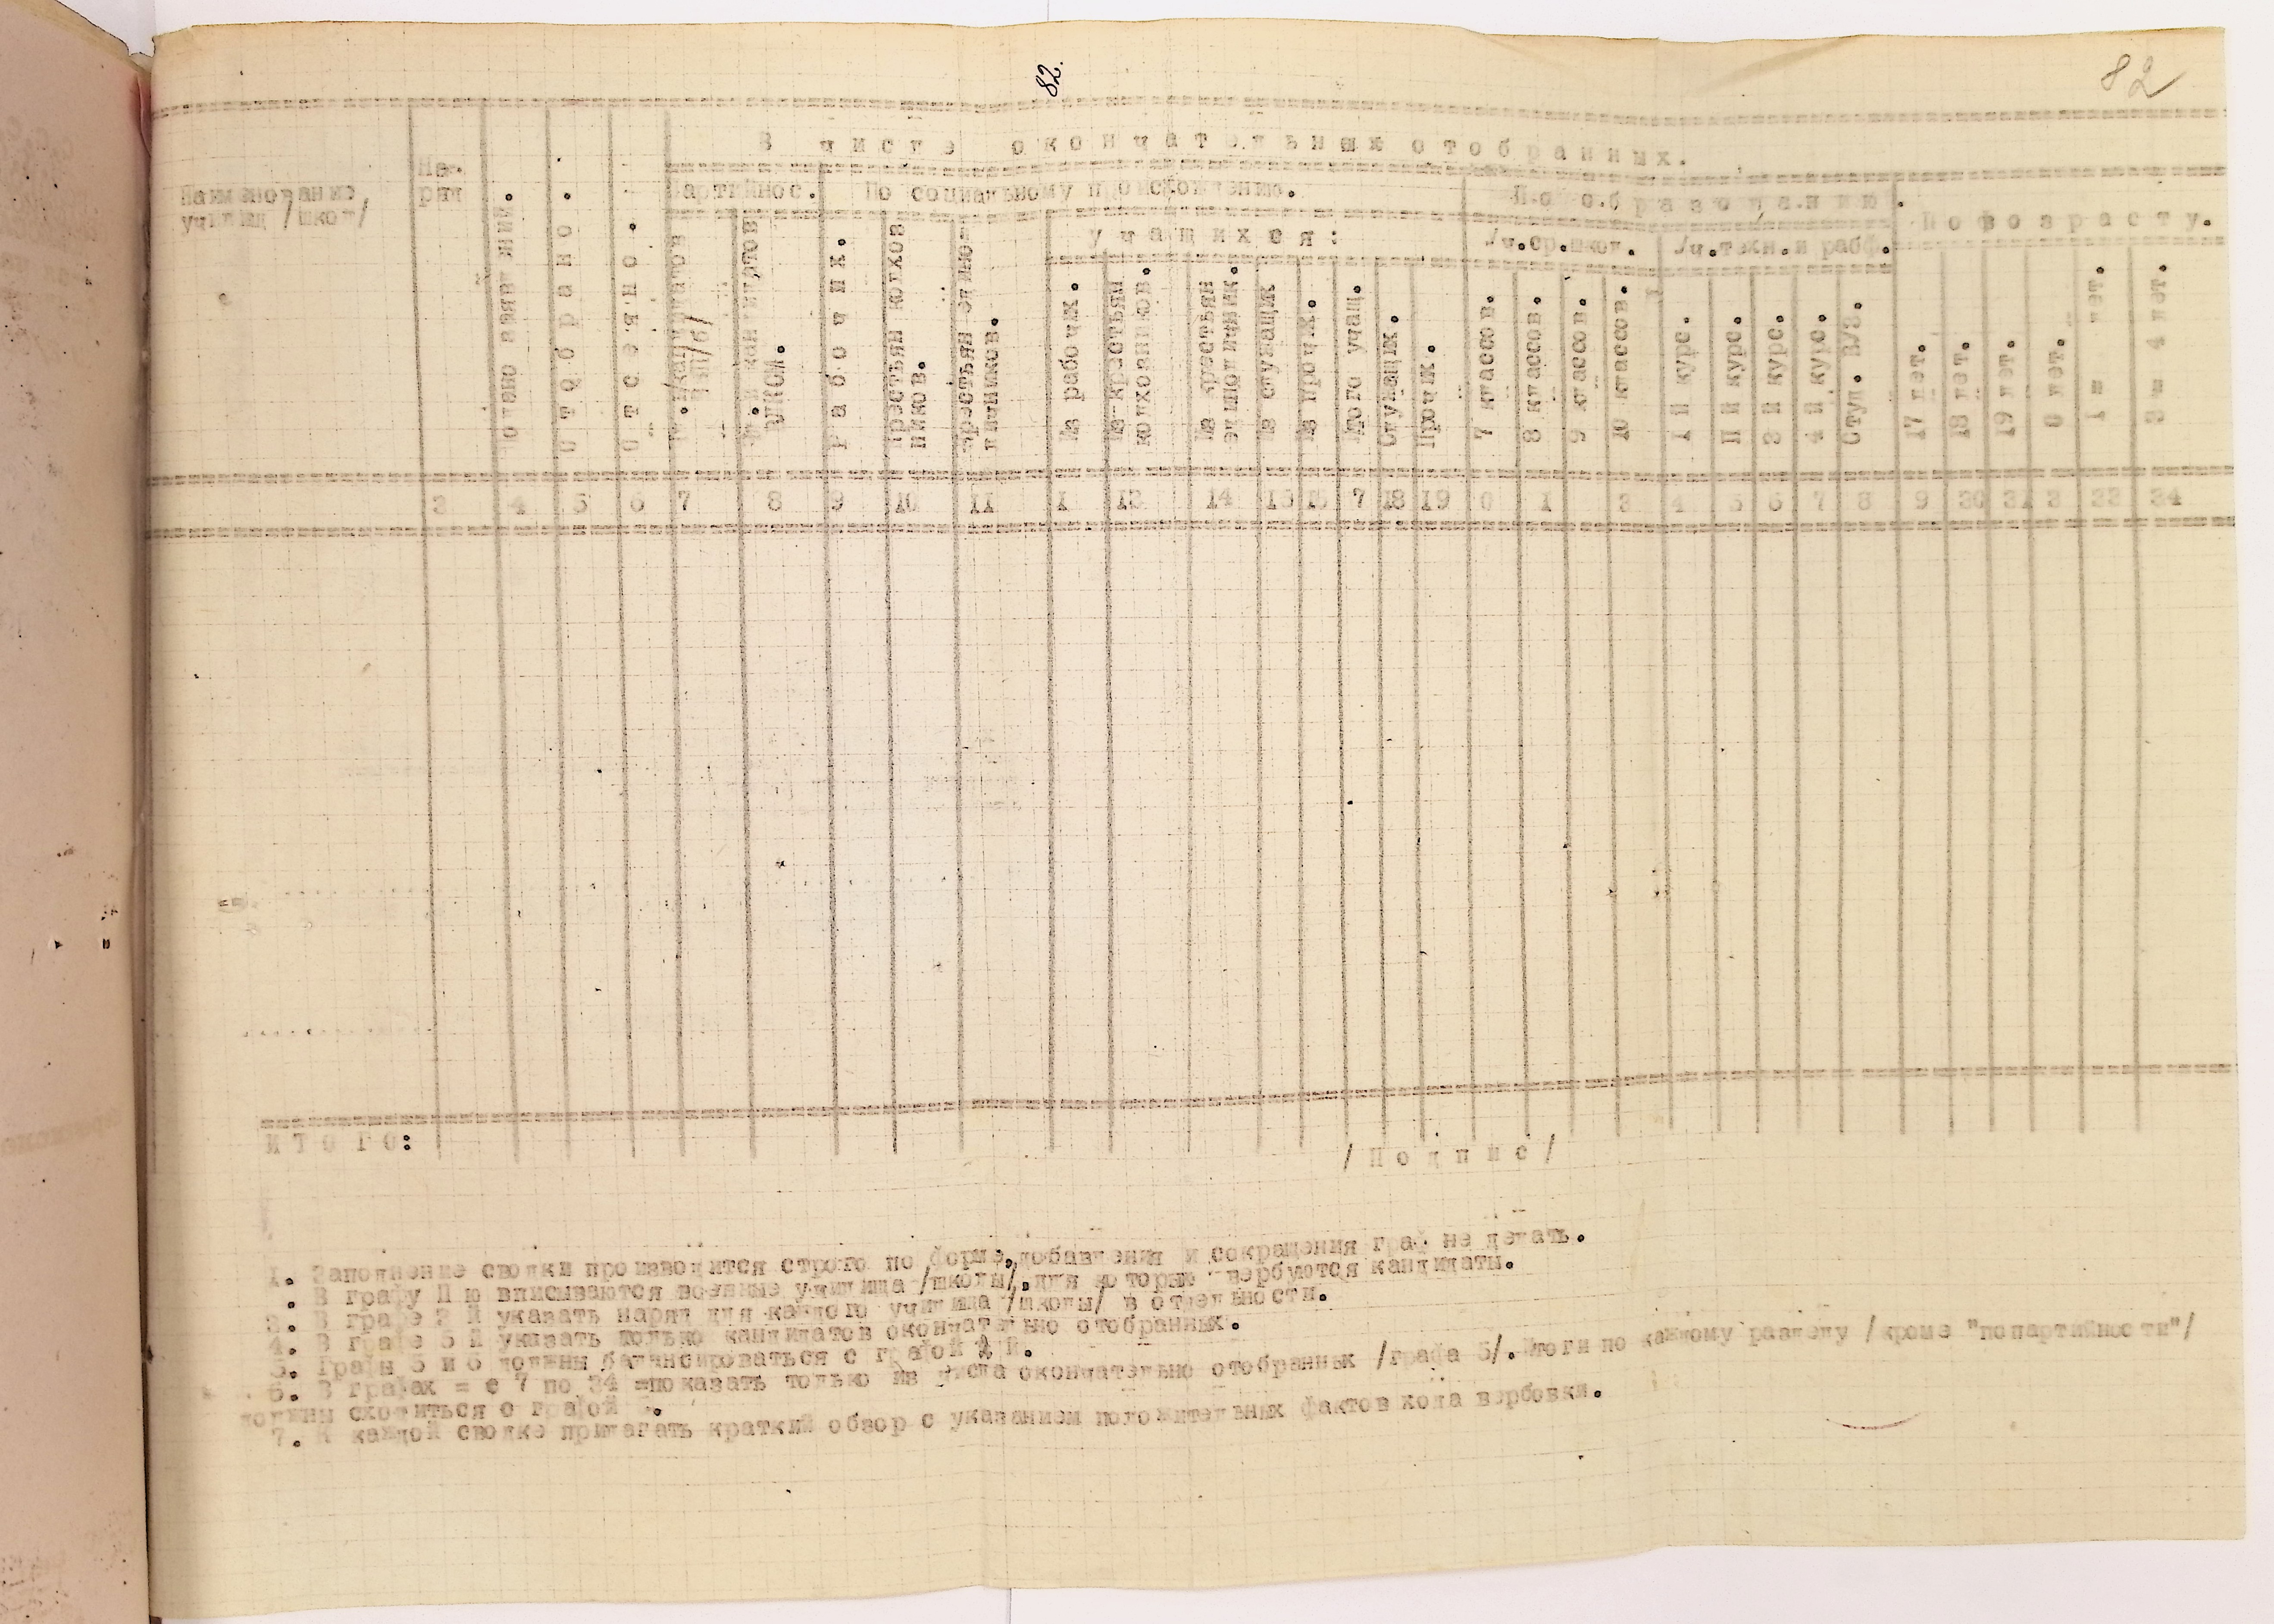 82.
82
В числе окончательных отобранных.
Наименование
училищ /школ/
На-
ряд
Партийнос.
По социальному происхождению.
По образованию.
По возрасту.
учащихся:
Уч.ср.школ.
Уч.техн.и рабф.
Подано заявлений.
Отобрано.
Отсеяно.
ВЛКСМ.
Рабочих.
Крестьян колхоз
ников.
Крестьян едино-
личников.
Из рабочих.
Из крестьян
колхозников.
Из крестьян
единоличник.
Из служащих
Из проч.
Итого учащ.
Служащих.
Прочих.
7 классов.
8 классов.
9 классов.
10 классов.
I й курс.
П й курс.
3 й курс.
4 й курс.
Студ. ВУЗ.
17 лет.
18 лет.
19 лет.
0 лет.
1 = лет.
3 = 4 лет.
3 4 5 6 7 8 9 10 11 1 13 14 15 15 7 18 19 0 1 3 4 5 6 7 8 9 30 31 3 33 34
ИТОГО:
/Подпис/
1. Заполнение сводки производится строго по форме,добавления и сокращения граф не делать.
. В графу П ю вписываются военные училища /школы/,для которых вербуются кандидаты.
3. В графе 3 й указать наряд для каждого училища /школы/ в отдельности.
4. В графе 5 й указать только кандидатов окончательно отобранных.
5. Графы 5 и 6 должны балансироваться с графой 4 й.
6. В графах = с 7 по 34 =показать только из числа окончательно отобранных /графа 5/.Итоги по каждому разделу /кроме "попартийности"/
должны сходиться с графой .
7. К каждой сводке прилагать краткий обзор с указанием положительных фактов хода вербовки.